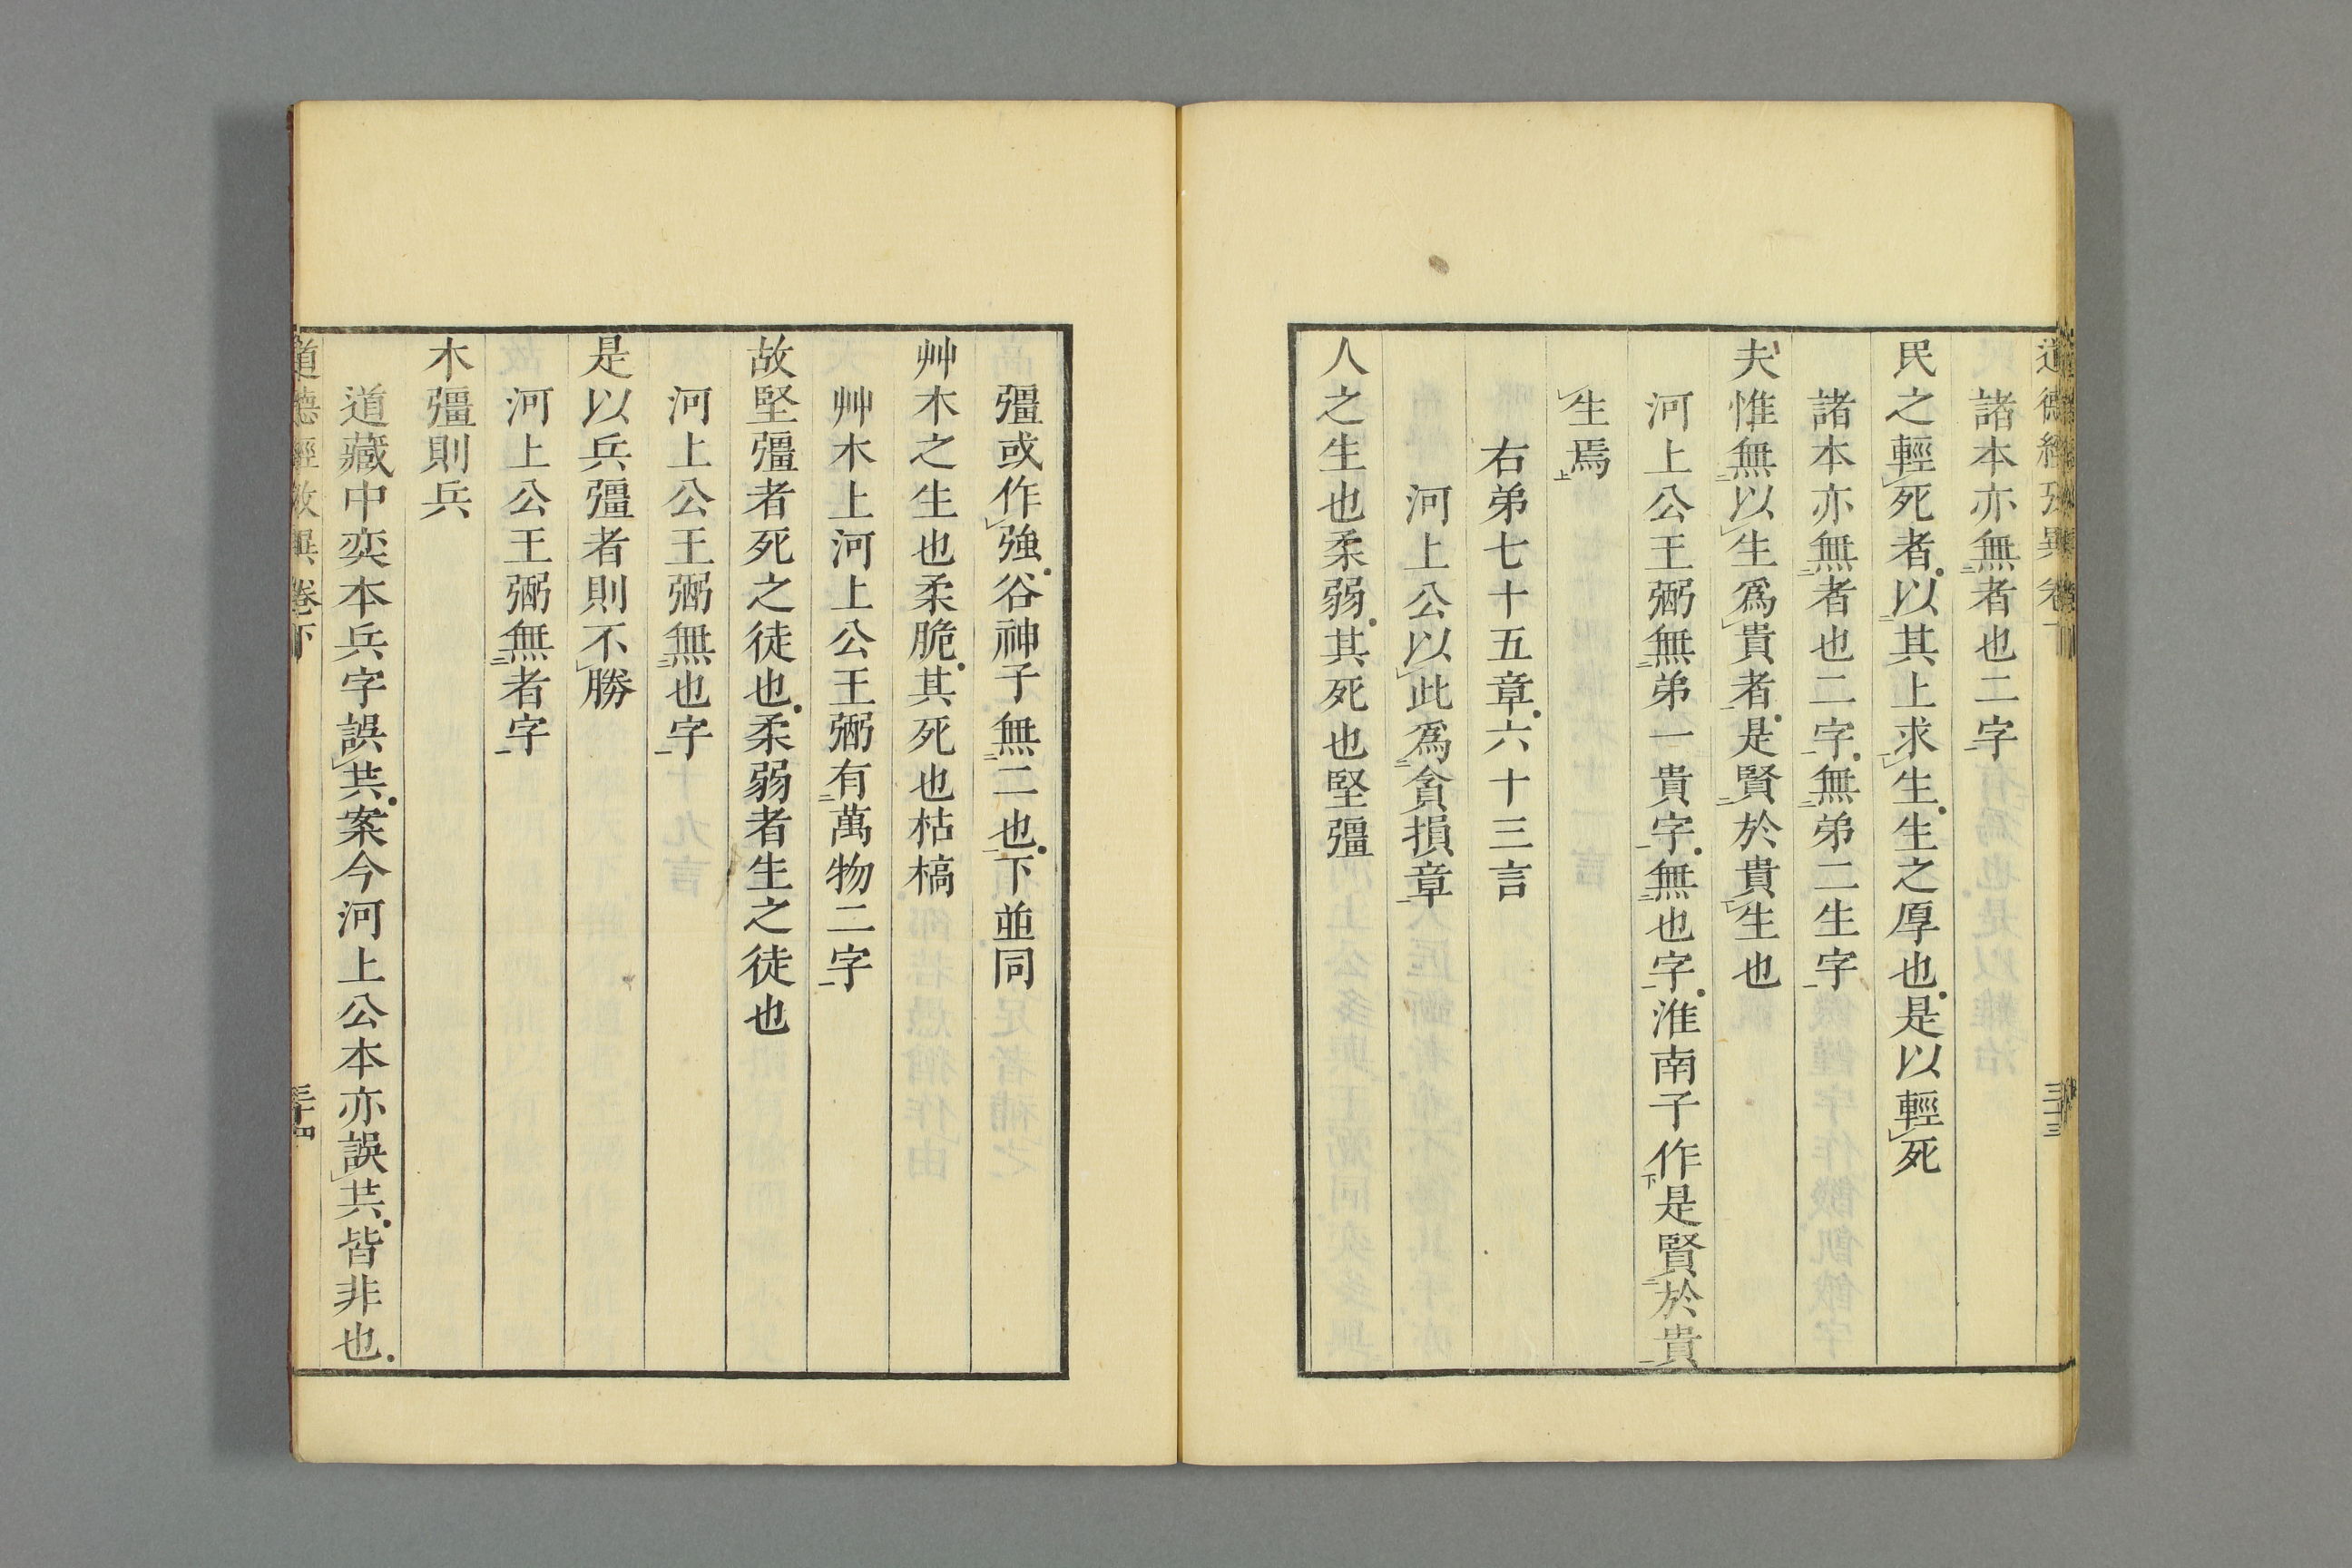 道德經攷異卷下
三十三
諸本亦無者也二字
民之輕死者以其上求生生之厚也是以輕死
諸本亦無者也二字無弟二生字
夫惟無以生爲貴者是賢於貴生也
河上公王弼無弟一貴字無也字淮南子作是賢於貴
生焉
右弟七十五章六十三言
河上公以此爲貪損章
人之生也柔弱其死也堅彊
彊或作強谷神子無二也下並同
艸木之生也柔脆其死也枯槁
艸木上河上公王弼有萬物二字
故堅彊者死之徒也柔弱者生之徒也
河上公王弼無也字
是以兵彊者則不勝
河上公王弼無者字
木彊則兵
道藏中奕本兵字誤共案今河上公本亦誤共皆非也
道德經攷異卷下
三十四